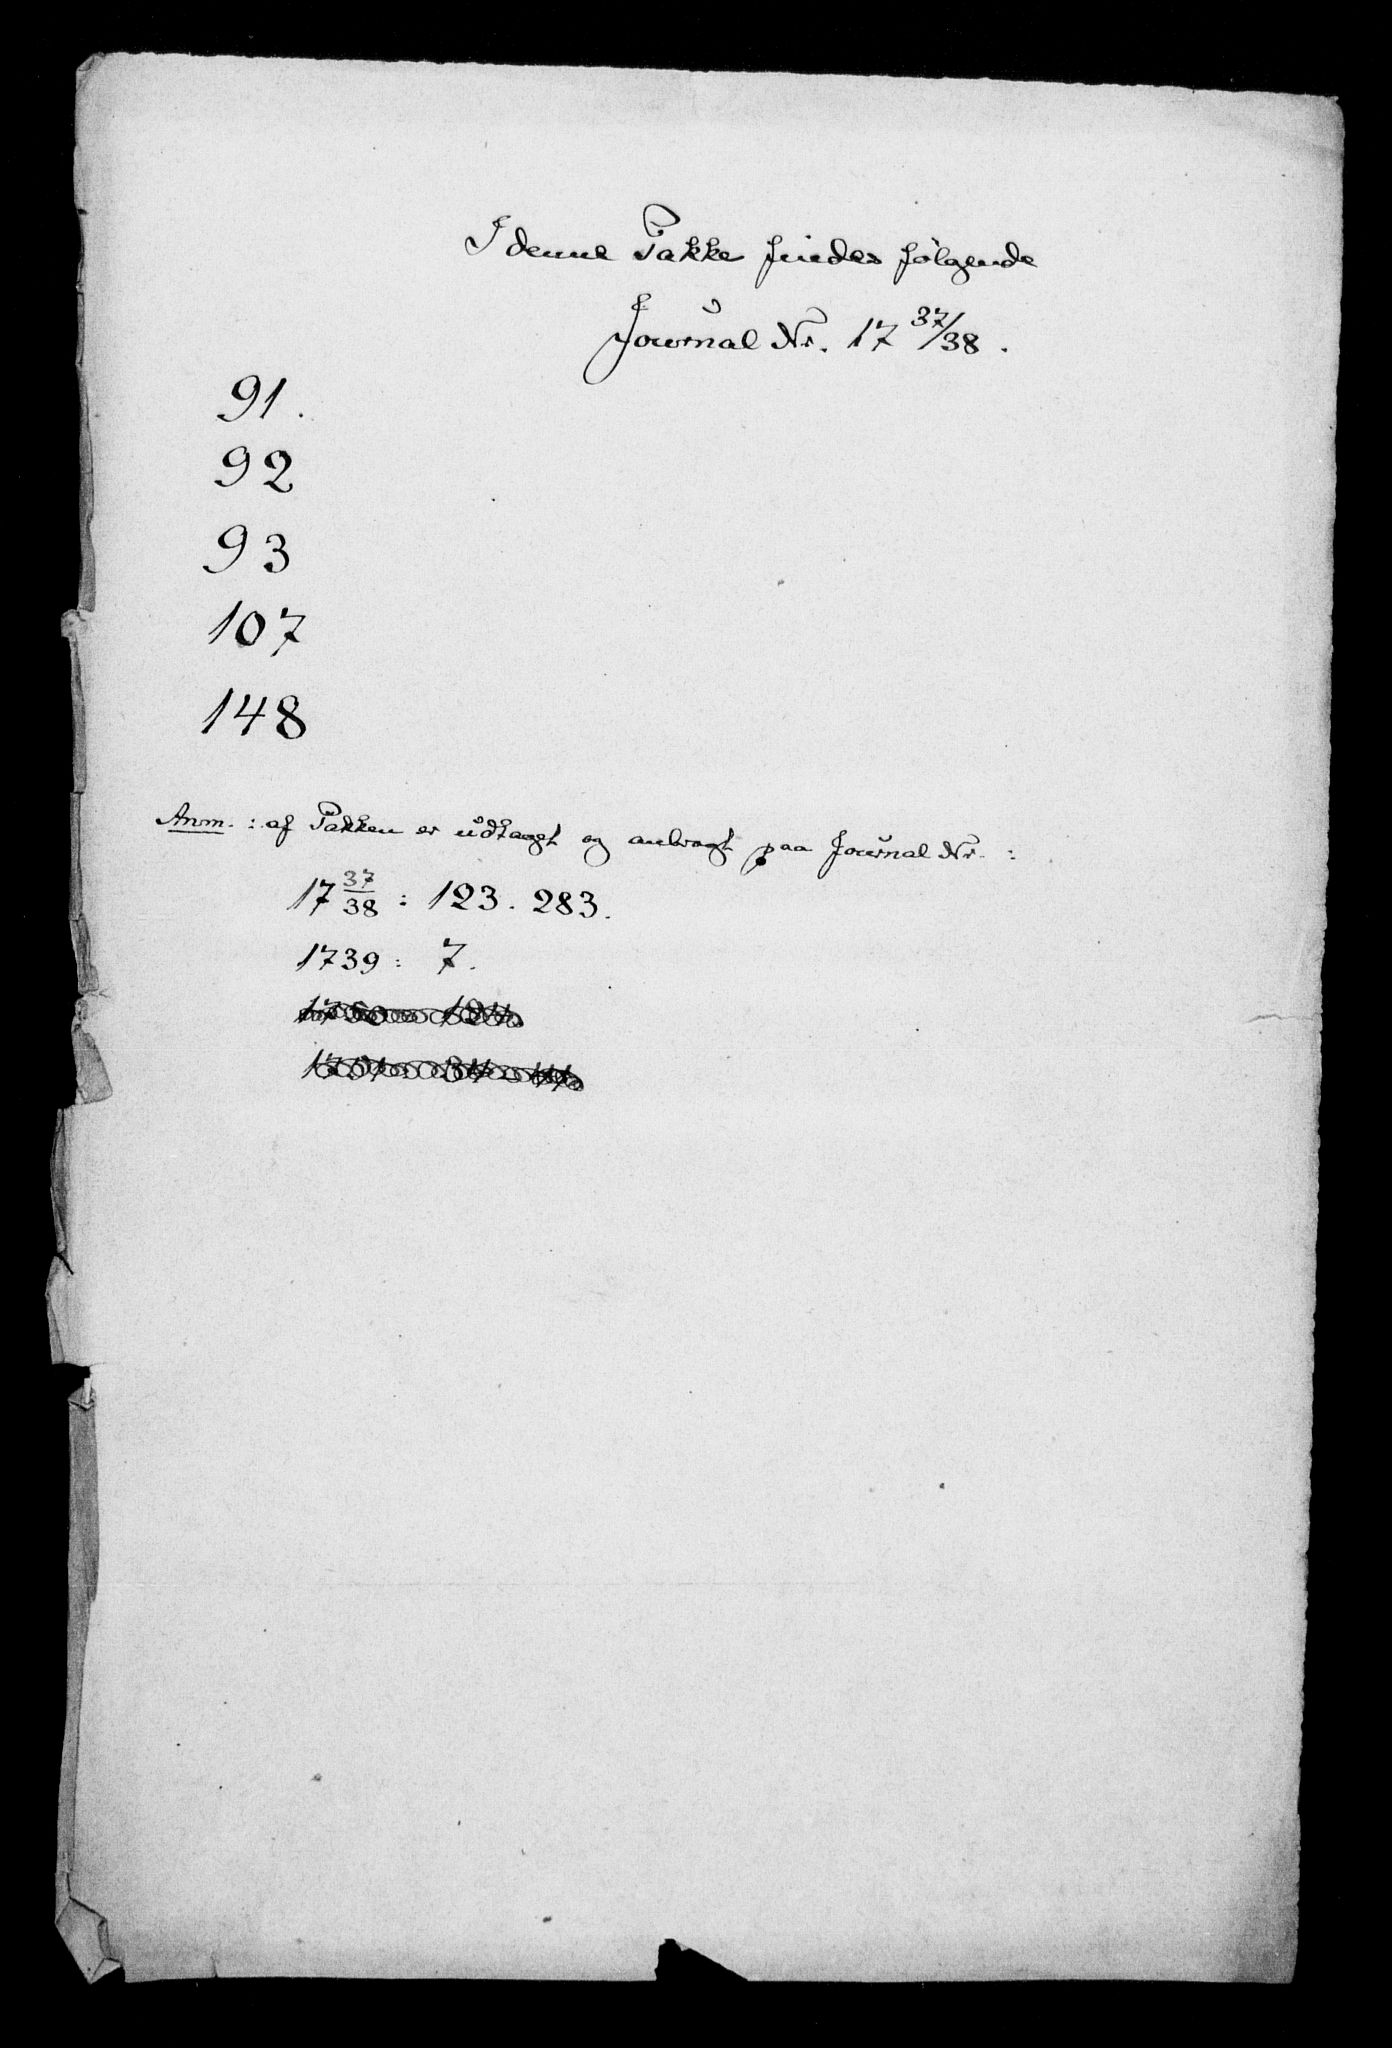 I denne Pakke findes følgende
Journal Nr. 17 37/38.
91.
92
93
107
148
Anm.: af Pakken er udtaget og anbragt paa Journal Nr.:
17 37/38 : 123. 283.
1739: 7.